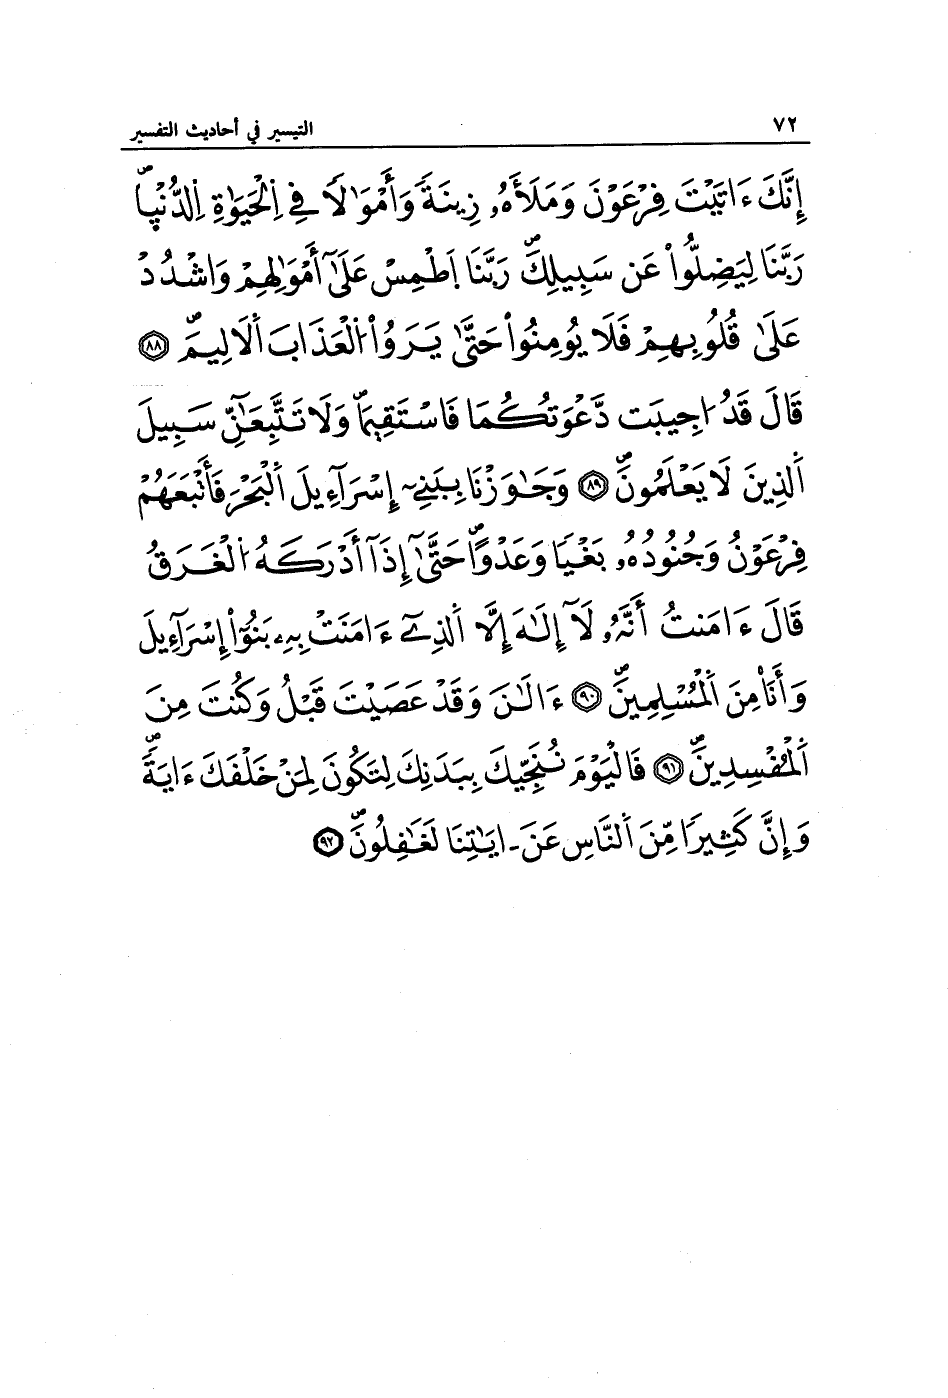 ٧٢
التيسير في أحاديث التفسير
إِنَّكَ ءَاتَيْتَ فِرْعَوْنَ وَمَلَأَهُۥ زِينَةً وَأَمْوَٰلًا فِے اِ۬لْحَيَوٰةِ اِ۬لدُّنْي۪اۖ
رَبَّنَا لِيَضِلُّواْ عَن سَبِيلِكَۖ رَبَّنَا اَ۪طْمِسْ عَلَىٰٓ أَمْوَٰلِهِمْ وَاشْدُدْ
عَلَىٰ قُلُوبِهِمْ فَلَا يُومِنُواْ حَتَّىٰ يَرَوُاْ اُ۬لْعَذَابَ اَ۬لَالِيمَۖ ٨٨
قَالَ قَدُ ا۟جِيبَت دَّعْوَتُكُمَا فَاسْتَقِيمَاۖ وَلَا تَتَّبِعَٰٓنِّ سَبِيلَ
اَ۬لذِينَ لَا يَعْلَمُونَۖ ٨٩ وَجَٰوَزْنَا بِبَنِےٓ إِسْرَآءِيلَ اَ۬لْبَحْرَ فَأَتْبَعَهُمْ
فِرْعَوْنُ وَجُنُودُهُۥ بَغْيًا وَعَدْوًاۖ حَتَّىٰٓ إِذَآ أَدْرَكَهُ اُ۬لْغَرَقُ
قَالَ ءَامَنتُ أَنَّهُۥ لَآ إِلَٰهَ إِلَّا اَ۬لذِےٓ ءَامَنَتْ بِهِۦ بَنُوٓاْ إِسْرَآءِيلَ
وَأَنَا۠ مِنَ اَ۬لْمُسْلِمِينَۖ ٩٠ ءَآلَٰنَ وَقَدْ عَصَيْتَ قَبْلُ وَكُنتَ مِنَ
اَ۬لْمُفْسِدِينَۖ ٩١ فَالْيَوْمَ نُنَجِّيكَ بِبَدَنِكَ لِتَكُونَ لِمَنْ خَلْفَكَ ءَايَةًۖ
وَإِنَّ كَثِيرًا مِّنَ اَ۬لنَّاسِ عَنَ ـ ايَٰتِنَا لَغَٰفِلُونَۖ ٩٢